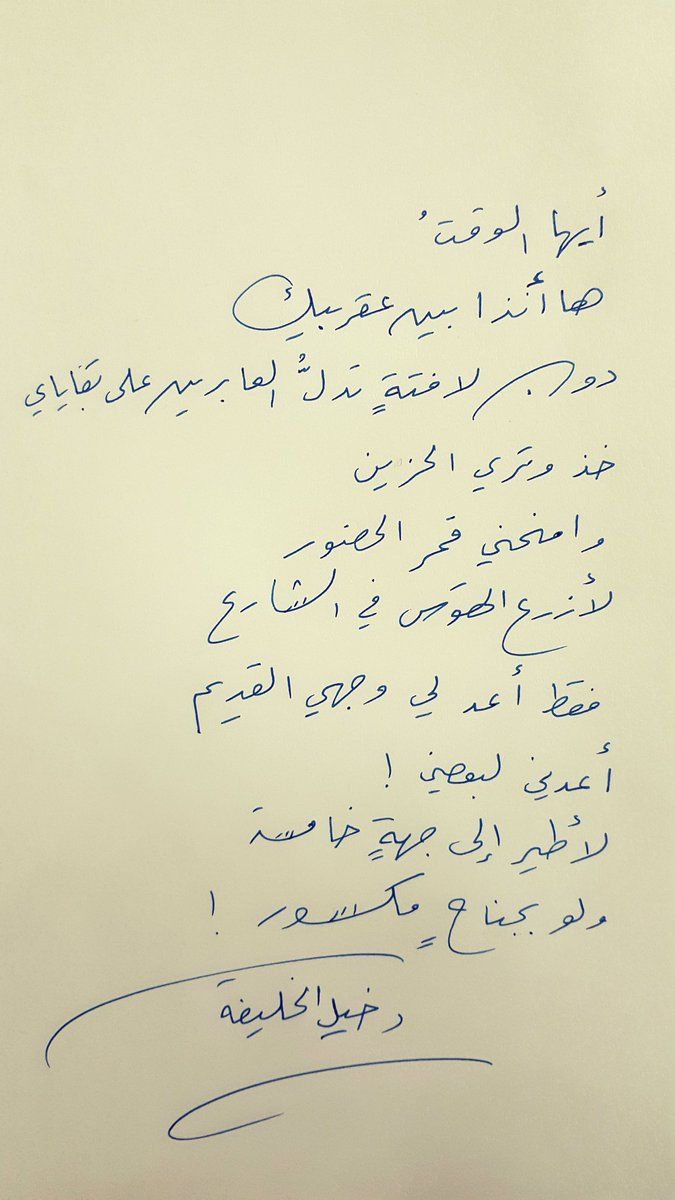 أيها الوقتُ
ها أنذا بين عقربيك
دون لافتةٍ تدلُّ العابرين على بقاياي
خذ وتري الحزين
وامنحني قمر الحضور
لأزرع الهوَس في الشارع
فقط أعد لي وجهي القديم
أعدني لبعضي !
لأطير إلى جهةٍ خامسة
ولو بجناحٍ مكسور !
دخيل الخليفة